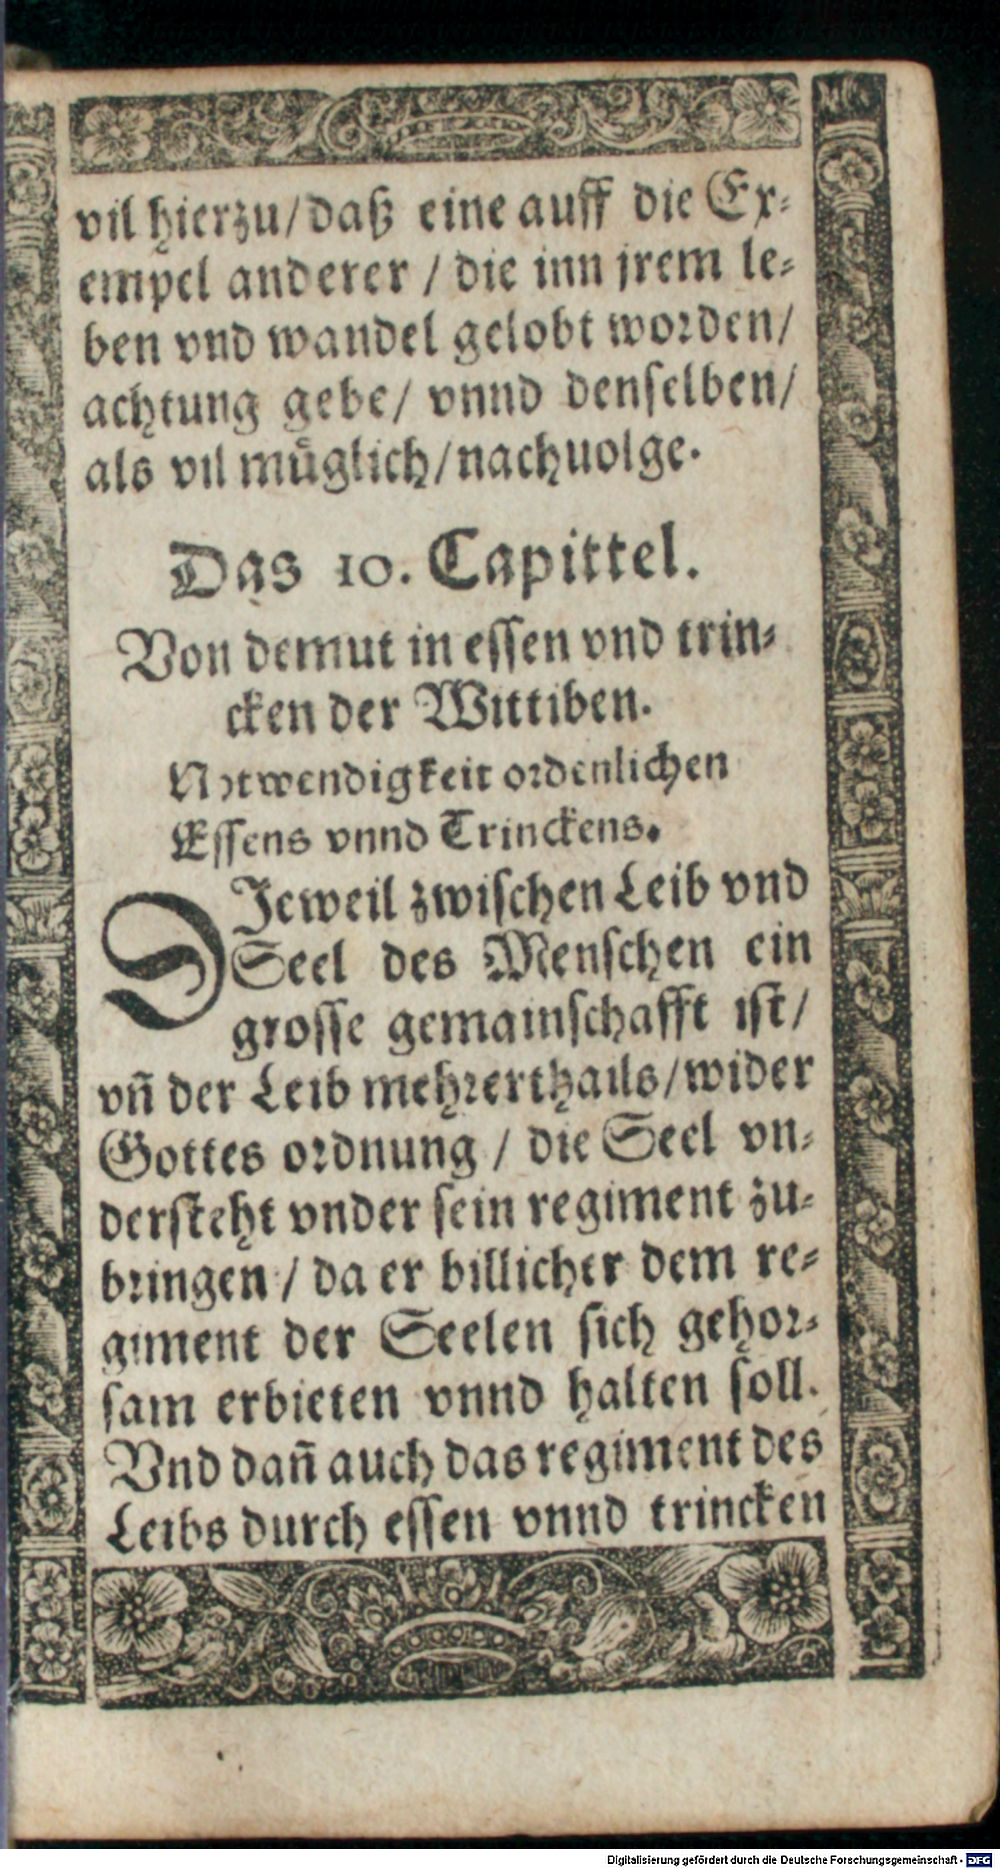 vil hierzu/daß eine auff die Ex⸗
empel anderer / die inn jrem le⸗
ben vnd wandel gelobt worden/
achtung gebe/ vnnd denselben/
als vil muͤglich/nachuolge.
Das 10. Capittel.
Von demut in essen vnd trin⸗
cken der Wittiben.
Notwendigkeit ordenlichen
Essens vnnd Trinckens.
DJeweil zwischen Leib vnd
Seel des Menschen ein
grosse gemainschafft ist/
vñ der Leib mehrerthails/wider
Gottes ordnung / die Seel vn⸗
dersteht vnder sein regiment zu⸗
bringen / da er billicher dem re⸗
giment der Seelen sich gehor⸗
sam erbieten vnnd halten soll.
Vnd dañ auch das regiment des
Leibs durch essen vnnd trincken
Digitalisierung gefördert durch die Deutsche Forschungsgemeinschaft - DFG